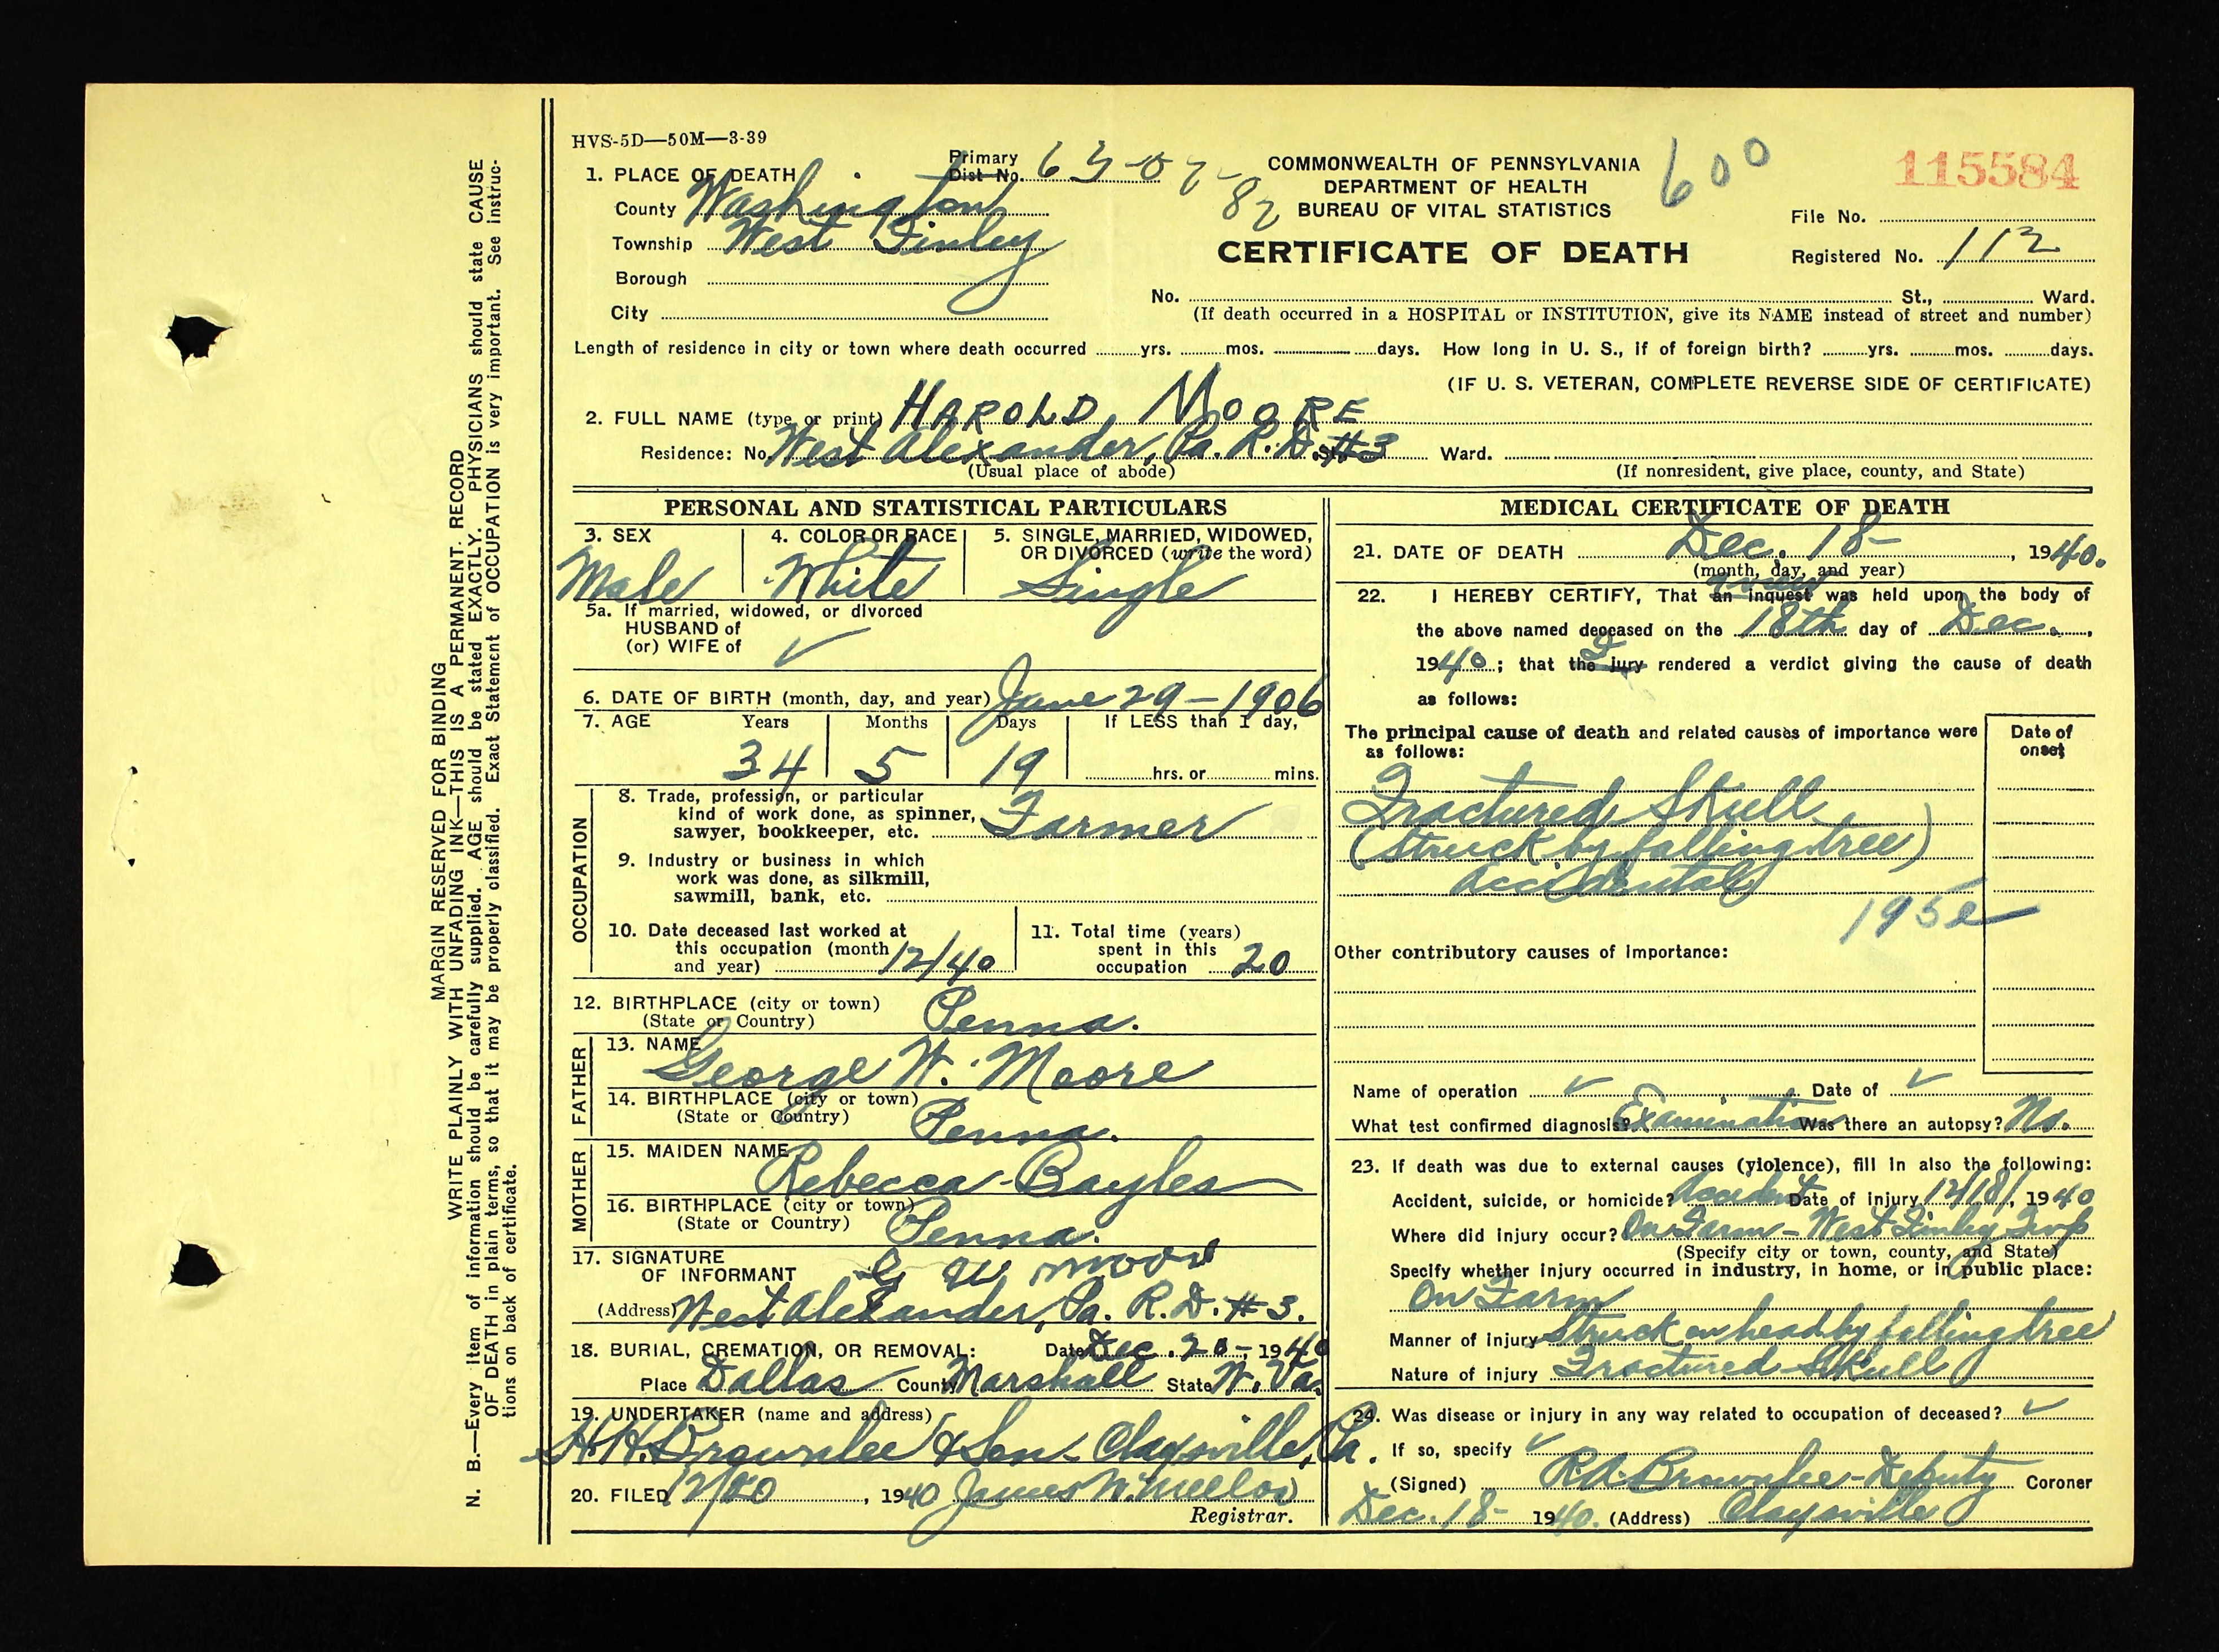 HVS-5D—50M—3-39
115584
600
1. PLACE OF DEATH
Primary
Dist No. 63-07-82
COMMONWEALTH OF PENNSYLVANIA
DEPARTMENT OF HEALTH
BUREAU OF VITAL STATISTICS
CERTIFICATE OF DEATH
File No.
Registered No. 112
County Washington
Township West Finley
Borough
City
No. St., Ward.
(If death occurred in a HOSPITAL or INSTITUTION, give its NAME instead of street and number)
Length of residence in city or town where death occurred yrs. mos. days. How long in U. S., if of foreign birth? yrs. mos. days.
(IF U. S. VETERAN, COMPLETE REVERSE SIDE OF CERTIFICATE)
2. FULL NAME (type or print) HAROLD MOORE
Residence: No. West Alexander, Pa. R.D. St. #3 Ward.
(Usual place of abode)
(If nonresident, give place, county, and State)
PERSONAL AND STATISTICAL PARTICULARS
3. SEX
Male
4. COLOR OR RACE
White
5. SINGLE, MARRIED, WIDOWED,
OR DIVORCED (write the word)
Single
5a. If married, widowed, or divorced
HUSBAND of
(or) WIFE of
6. DATE OF BIRTH (month, day, and year) June 29-1906
7. AGE Years Months Days If LESS than 1 day,
34 5 19 hrs. or mins.
OCCUPATION
8. Trade, profession, or particular
kind of work done, as spinner,
sawyer, bookkeeper, etc. Farmer
9. Industry or business in which
work was done, as silkmill,
sawmill, bank, etc.
10. Date deceased last worked at
this occupation (month
and year) 12/40
11. Total time (years)
spent in this
occupation 20
12. BIRTHPLACE (city or town)
(State or Country) Penna.
FATHER
13. NAME
George W. Moore
14. BIRTHPLACE (city or town)
(State or Country) Penna.
MOTHER
15. MAIDEN NAME
Rebecca Bayles
16. BIRTHPLACE (city or town)
(State or Country) Penna.
17. SIGNATURE
OF INFORMANT G W Moore
(Address) West Alexander, Pa. R.D. #3.
18. BURIAL, CREMATION, OR REMOVAL: Date Dec. 20- 1940
Place Dallas County Marshall State W. Va.
19. UNDERTAKER (name and address)
H.H. Brownlee & Son- Claysville, Pa.
20. FILED 12/20, 1940 James W. Mellor
Registrar.
MEDICAL CERTIFICATE OF DEATH
21. DATE OF DEATH Dec. 18-, 1940.
(month, day, and year)
view
22. I HEREBY CERTIFY, That an inquest was held upon the body of
the above named deceased on the 18th day of Dec.,
I
1940; that the jury rendered a verdict giving the cause of death
as follows:
The principal cause of death and related causes of importance were
as follows:
Date of
onset
Fractured Skull
(Struck by falling tree)
Accidental
195e
Other contributory causes of importance:
Name of operation Date of
What test confirmed diagnosis? Examination Was there an autopsy? No.
23. If death was due to external causes (violence), fill in also the following:
Accident, suicide, or homicide? Accident Date of injury 12/18/, 1940
Where did injury occur? On Farm - West Finley Twp
(Specify city or town, county, and State)
Specify whether injury occurred in industry, in home, or in public place:
On Farm
Manner of injury Struck on head by falling tree
Nature of injury Fractured Skull
24. Was disease or injury in any way related to occupation of deceased?
If so, specify
(Signed) R.A. Brownlee - Deputy Coroner
Dec. 18- 1940. (Address) Claysville
MARGIN RESERVED FOR BINDING
WRITE PLAINLY WITH UNFADING INK—THIS IS A PERMANENT RECORD
N. B.—Every item of information should be carefully supplied. AGE should be stated EXACTLY. PHYSICIANS should state CAUSE
OF DEATH in plain terms, so that it may be properly classified. Exact Statement of OCCUPATION is very important. See instruc-
tions on back of certificate.